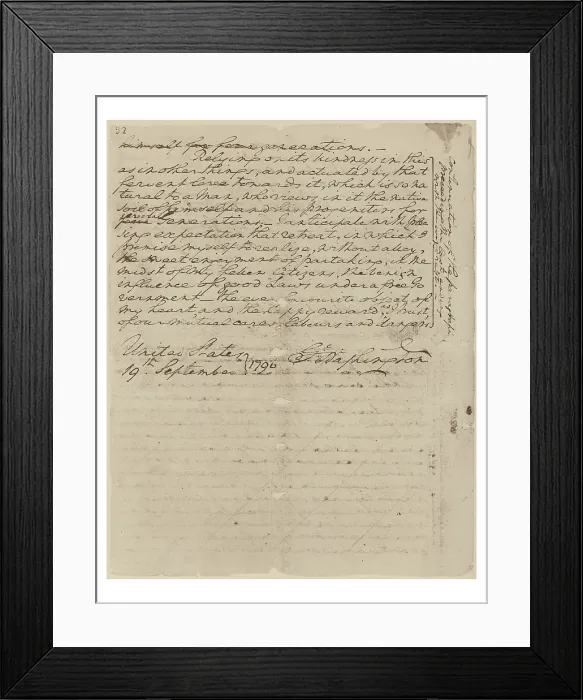 32
himself for four generations. —
Relying on its kindness in this
as in other things, and actuated by that
fervent love towards it, which is so na
tural to a Man, who views in it the native
soil of himself and his progenitors for
several
four Generations; — I anticipate with plea
sing expectation that retreat, in which I
promise myself to realize, without alloy,
the sweet enjoyment of partaking, in the
midst of my fellow Citizens, the benign
influence of good Laws under a free Go
vernment — the ever favourite object of
my heart, and the happy reward, as I trust,
of our mutual cares, labours and dangers
United States
19th September } 1796
G. Washington